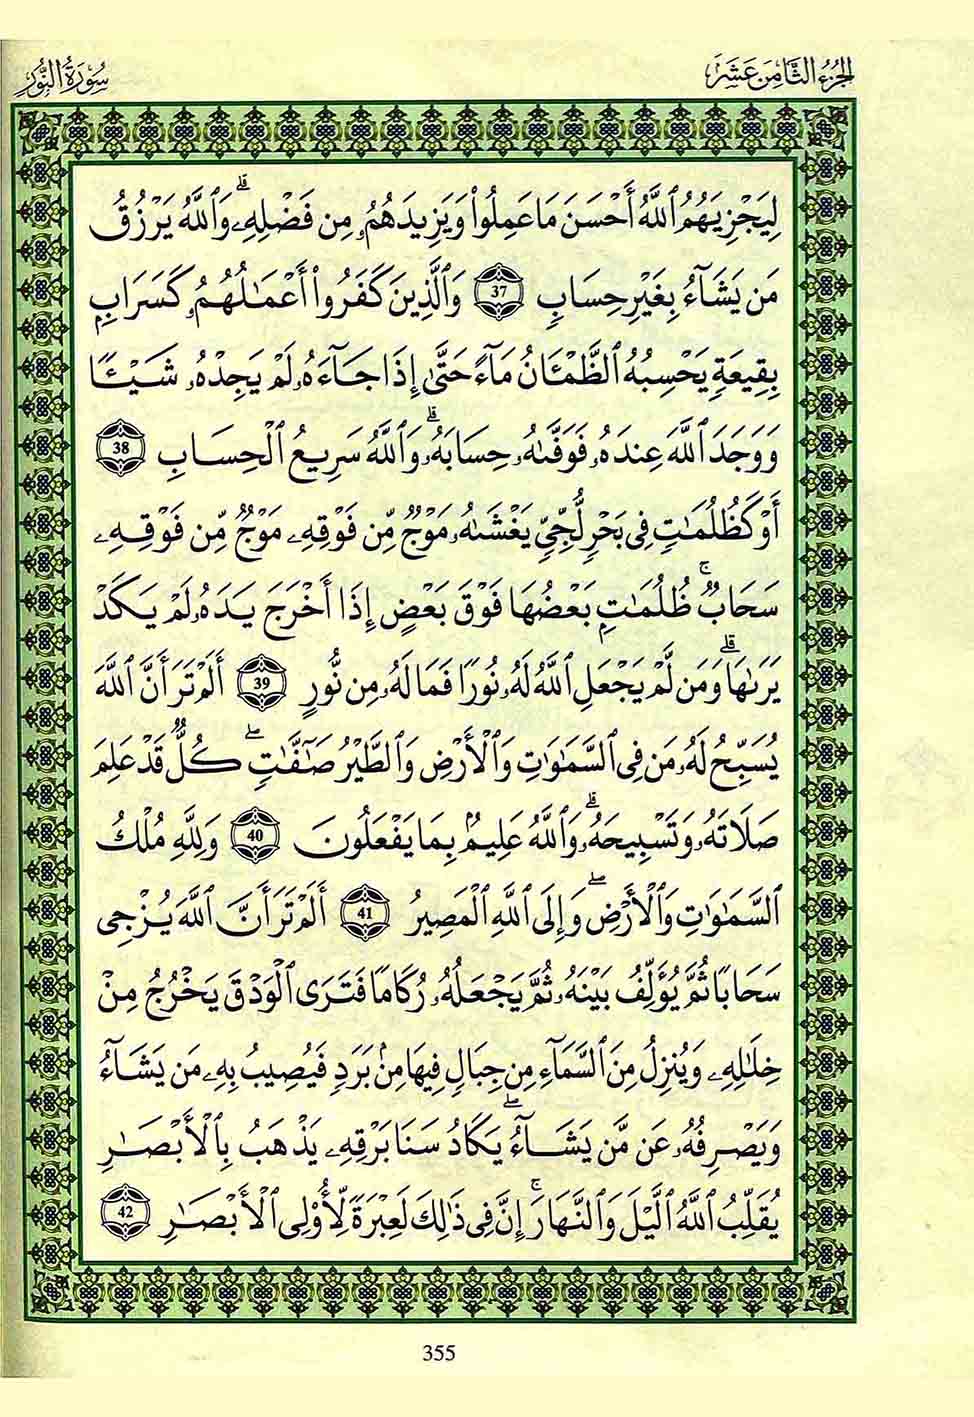 الجزء الثامن عشر
سورة النور
لِيَجْزِيَهُمُ ٱللَّهُ أَحْسَنَ مَا عَمِلُوا۟ وَيَزِيدَهُمُۥ مِن فَضْلِهِۦۗ وَٱللَّهُ يَرْزُقُ
مَن يَشَآءُ بِغَيْرِ حِسَابٍۖ 37 وَٱلَّذِينَ كَفَرُوٓا۟ أَعْمَـٰلُهُمُۥ كَسَرَابِۭ
بِقِيعَةٍ يَحْسِبُهُ ٱلظَّمْـَٔانُ مَآءً حَتَّىٰٓ إِذَا جَآءَهُۥ لَمْ يَجِدْهُۥ شَيْـًٔا
وَوَجَدَ ٱللَّهَ عِندَهُۥ فَوَفَّىٰهُۥ حِسَابَهُۥۗ وَٱللَّهُ سَرِيعُ ٱلْحِسَابِ 38
أَوْ كَظُلُمَـٰتٍ فِى بَحْرٍ لُّجِّىٍّ يَغْشَىٰهُۥ مَوْجٌ مِّن فَوْقِهِۦ مَوْجٌ مِّن فَوْقِهِۦ
سَحَابٌۚ ظُلُمَـٰتِۭ بَعْضُهَا فَوْقَ بَعْضٍ إِذَآ أَخْرَجَ يَدَهُۥ لَمْ يَكَدْ
يَرَىٰهَاۗ وَمَن لَّمْ يَجْعَلِ ٱللَّهُ لَهُۥ نُورًا فَمَا لَهُۥ مِن نُّورٍ 39 أَلَمْ تَرَ أَنَّ ٱللَّهَ
يُسَبِّحُ لَهُۥ مَن فِى ٱلسَّمَـٰوَٰتِ وَٱلْأَرْضِ وَٱلطَّيْرُ صَـٰٓفَّـٰتٍۖ كُلٌّ قَدْ عَلِمَ
صَلَاتَهُۥ وَتَسْبِيحَهُۥۗ وَٱللَّهُ عَلِيمٌۢ بِمَا يَفْعَلُونَ 40 وَلِلَّهِ مُلْكُ
ٱلسَّمَـٰوَٰتِ وَٱلْأَرْضِۖ وَإِلَى ٱللَّهِ ٱلْمَصِيرُ 41 أَلَمْ تَرَ أَنَّ ٱللَّهَ يُزْجِى
سَحَابًا ثُمَّ يُؤَلِّفُ بَيْنَهُۥ ثُمَّ يَجْعَلُهُۥ رُكَامًا فَتَرَى ٱلْوَدْقَ يَخْرُجُ مِنْ
خِلَـٰلِهِۦ وَيُنزِلُ مِنَ ٱلسَّمَآءِ مِن جِبَالٍ فِيهَا مِنۢ بَرَدٍ فَيُصِيبُ بِهِۦ مَن يَشَآءُ
وَيَصْرِفُهُۥ عَن مَّن يَشَآءُۖ يَكَادُ سَنَا بَرْقِهِۦ يَذْهَبُ بِٱلْأَبْصَـٰرِ
يُقَلِّبُ ٱللَّهُ ٱلَّيْلَ وَٱلنَّهَارَۚ إِنَّ فِى ذَٰلِكَ لَعِبْرَةً لِّأُو۟لِى ٱلْأَبْصَـٰرِ 42
355